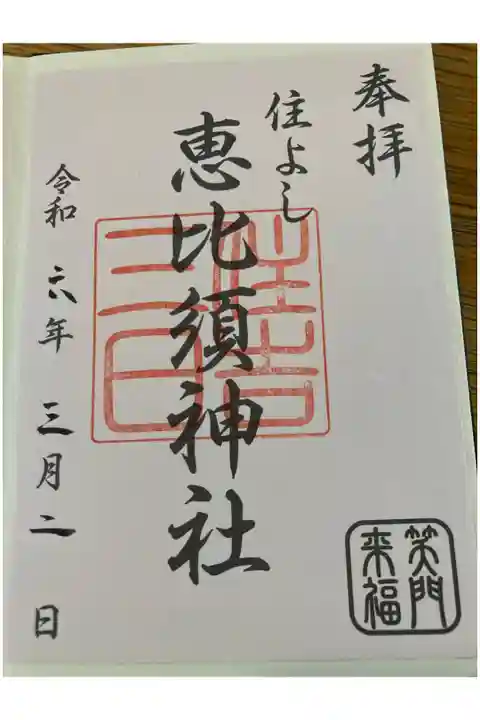 奉拝
住よし
恵比須神社
令和 六年 三月二 日
笑門
来福